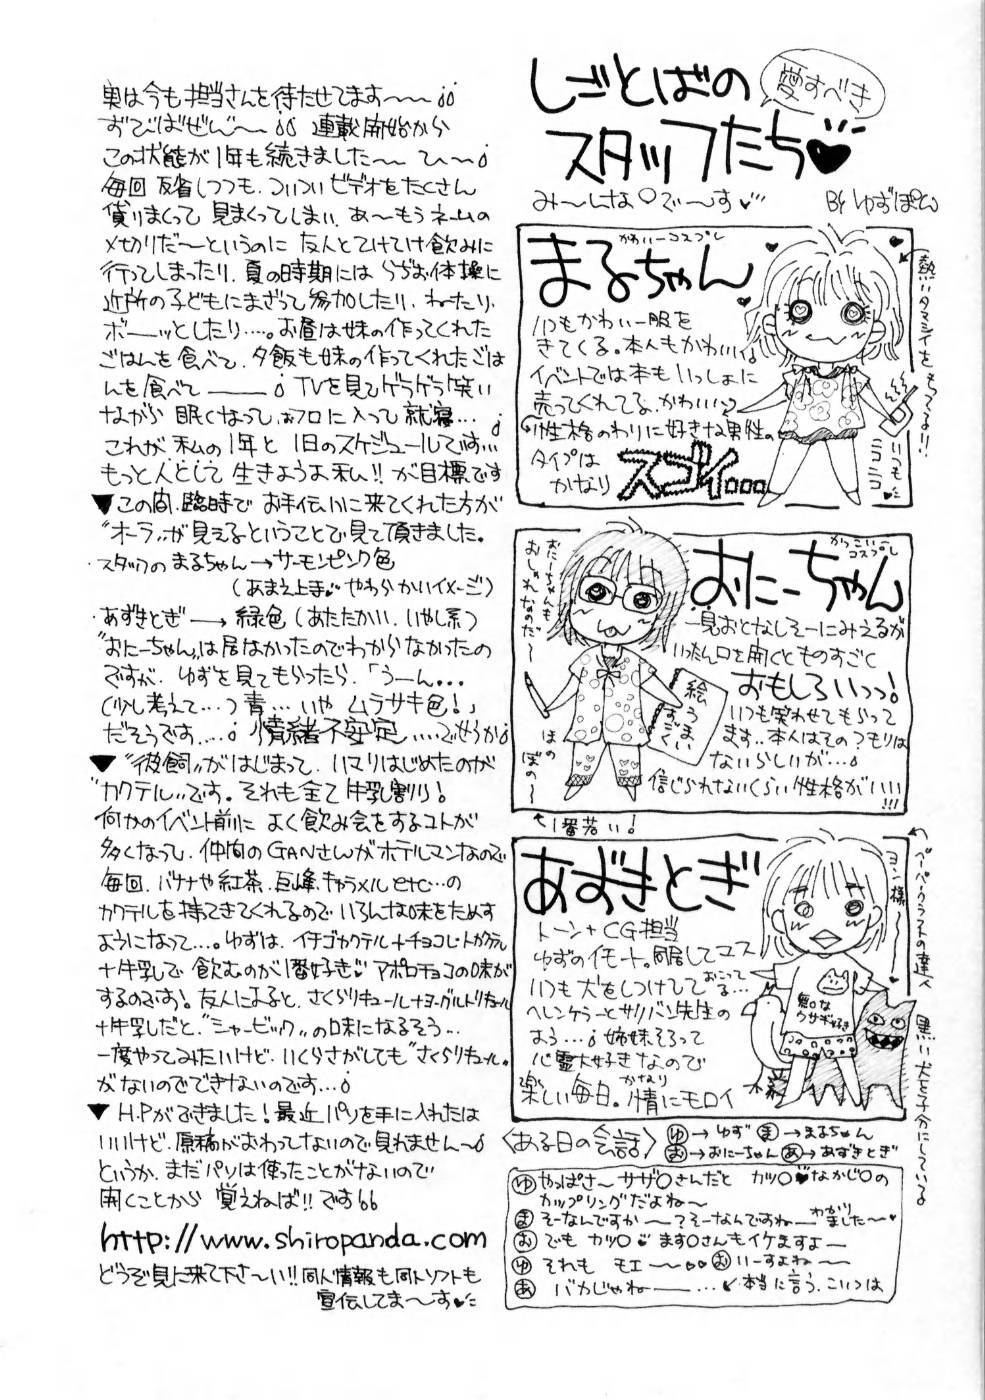 しごとばの
愛すべき
スタッフたち♥
み〜んな○で〜す♥
BY ゆずぽん
実は今も担当さんを待たせてます〜〜
連載開始から
この状態が1年も続きました〜〜 ひ〜
毎回反省しつつも、ついついビデオをたくさん
借りまくって見まくってしまい、あ〜もうネームの
〆切りだ〜というのに 友人とてけてけ飲みに
行ってしまったり、夏の時期には らぢお体操に
近所の子どもにまざって参加したり、ねたり、
ボーーッとしたり…。お昼は妹の作ってくれた
ごはんを食べて、夕飯も妹の作ってくれたごは
んを食べて――― TVを見てゲラゲラ笑い
ながら 眠くなって、おフロに入って就寝…
これが私の1年と1日のスケジュールです…
もっと人として生きようよ私!! が目標です
▼この間、臨時で お手伝いに来てくれた方が
"オーラ"が見えるということで見て頂きました。
・スタッフの まるちゃん→サーモンピンク色
(あまえ上手♥やわらかいイメージ)
・あずきとぎ→緑色(あたたかい、いやし系)
"おにーちゃん"は居なかったのでわからなかったの
ですが、ゆずを見てもらったら、「うーん…
(少し考えて…)青…いや ムラサキ色!」
だそうです…。情緒不安定……でせうか
▼"彼飼"がはじまって、ハマりはじめたのが
"カクテル"です。それも全て牛乳割り!
何かのイベント前に よく飲み会をするコトが
多くなって、仲間のGANさんがホテルマンなので
毎回、バナナや紅茶、巨峰、キャラメルetc…の
カクテルを持ってきてくれるので いろんな味をためす
ようになって…。ゆずは、イチゴカクテル+チョコレートカクテル
+牛乳で飲むのが1番好き♥ アポロチョコの味が
するのです!友人によると、さくらリキュール+ヨーグルトリキュール
+牛乳だと、"シャービック"の味になるそう…
一度やってみたいけど、いくらさがしても"さくらリキュール"
がないのでできないのです…
▼H.Pができました!最近パソを手に入れたは
いいけど、原稿がおわってないので見れません〜
というか、まだパソは使ったことがないので
開くことから 覚えねば!!です
http://www.shiropanda.com
どうぞ見に来て下さ〜い!!同人情報も同人ソフトも
宣伝してま〜す♥
かわいーコスプレ
まるちゃん
いつもかわいー服を
きてくる。本人もかわいい
イベントでは本もいっしょに
売ってくれてる、かわいい
性格のわりに好きな男性の
タイプは
かなり
スゴイ。。。
熱いタマシイをもってるよ!!
いつも♥
ニコニコ
かっこいーコスプレ
おにーちゃん
一見おとなしそーにみえるが
いったん口を開くとものすごく
おもしろいっっ!
いつも笑わせてもらって
ます…本人はそのつもりは
ないらしいが…
信じられないくらい性格がいい
!!!
おにーちゃんも
おしゃれなのだ〜
絵
うますごく
ほの
ぼの〜
1番若い!
あずきとぎ
トーン+CG担当
ゆずのイモート。同居してマス
いつも犬をしつけててる…
おこって
ヘレンケラーとサリバン先生の
よう… 姉妹そろって
心霊大好きなので
楽しい毎日。かなり情にモロイ
ヨン様〜
ペーパークラフトの達人
黒い犬を子分にしている
ウサギ好き
〈ある日の会話〉 ゆ→ゆず ま→まるちゃん
お→おにーちゃん あ→あずきとぎ
ゆ やっぱさ〜 サザ○さんだと カツ○♥なかじ○の
カップリングだよね〜
ま そーなんですか〜〜?そーなんですね〜 わかりました〜♥
お でも カツ○♥ます○さんもイケますよ〜
ゆ それも モエ〜〜♥♥ お いーすよね〜
あ バカじゃね―― …↙本当に言う、こいつは